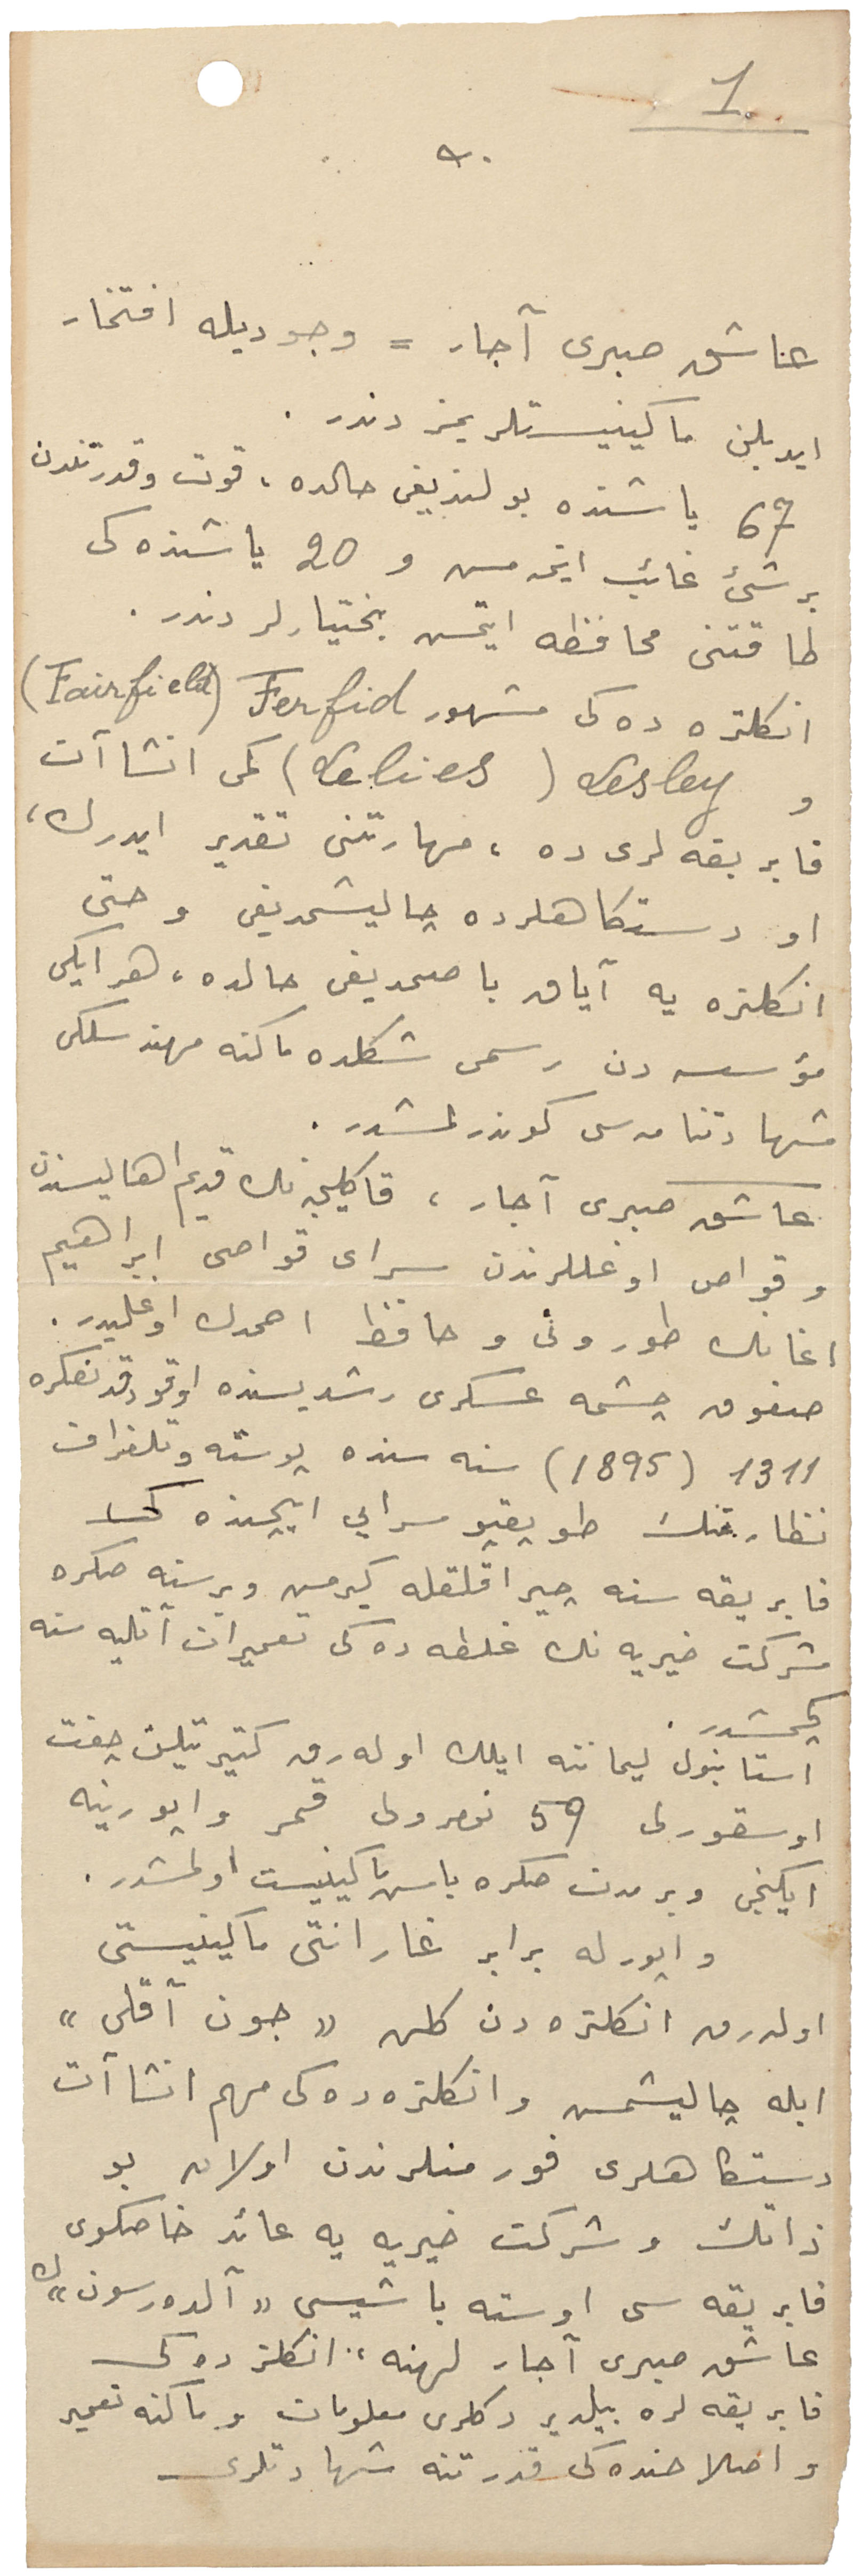 1.
عاشق صبری آجار = وجودیله افتخار
ایدیلن ماکینیستلریمز دندر .
67 یاشنده بولندیغی حالده ، قوت و قدرتندن
بر شئ غائب ایتمه‌مس و 20 یاشنده کی
طاقتنی محافظه ایتمس بختیارلر دندر .
انکلتره ده کی مشهور Ferfid (Fairfield)
و Vesley ( ) کمی انشاآت
فابریقه لری ده ، مهارتنی تقدیر ایدرك ،
او دستکاهلرده چالیشمدیغی و حتی
انکلتره یه آیاق باصمدیغی حالده ، هر ایکی
مؤسسه دن رسمی شکلده ماکنه مهندسلکی
شهادتنامه سی کوندرلمشدر .
عاشق صبری آجار ، قاکلیجه نك قدیم اهالیسندن
و قواص اوغللرندن سرای قواصی ابراهیم
اغانك طورونی و حافظ احمدك اوغلیدر .
صغوق چشمه عسکری رشدیسنده اوقودقدنصکره
1311 (1895) سنه سنده پوسته وتلغراف
نظارتنك طوپقپو سرایی ایچنده کی
فابریقه سنه چیراقلقله کیرمس وبرسنه صکره
شرکت خیریه نك غلطه ده کی تعمیرات آتلیه سنه
کچمشدر .
استانبول لیماننه ایلك اوله رق کتیرتیلن چفت
اوسقورلی 59 نومرولی قمر واپورینه
ایکنجی وبر مدت صکره باس ماکینیست اولمشدر .
واپورله برابر غارانتی ماکینیستی
اوله رق انکلتره دن کلن « جون آقلی »
ایله چالیشمس و انکلتره ده کی مهم انشاآت
دستکاهلری فورمنلرندن اولان بو
ذاتك و شرکت خیریه یه عائد خاصکوی
فابریقه سی اوسته باشیسی « آلده رسون » ك
عاشق صبری آجار لهنه ، انکلتره ده کی
فابریقه لره بیلدیردکلری معلومات و ماکنه تعمیر
و اصلاحنده کی قدرتنه شهادتلری